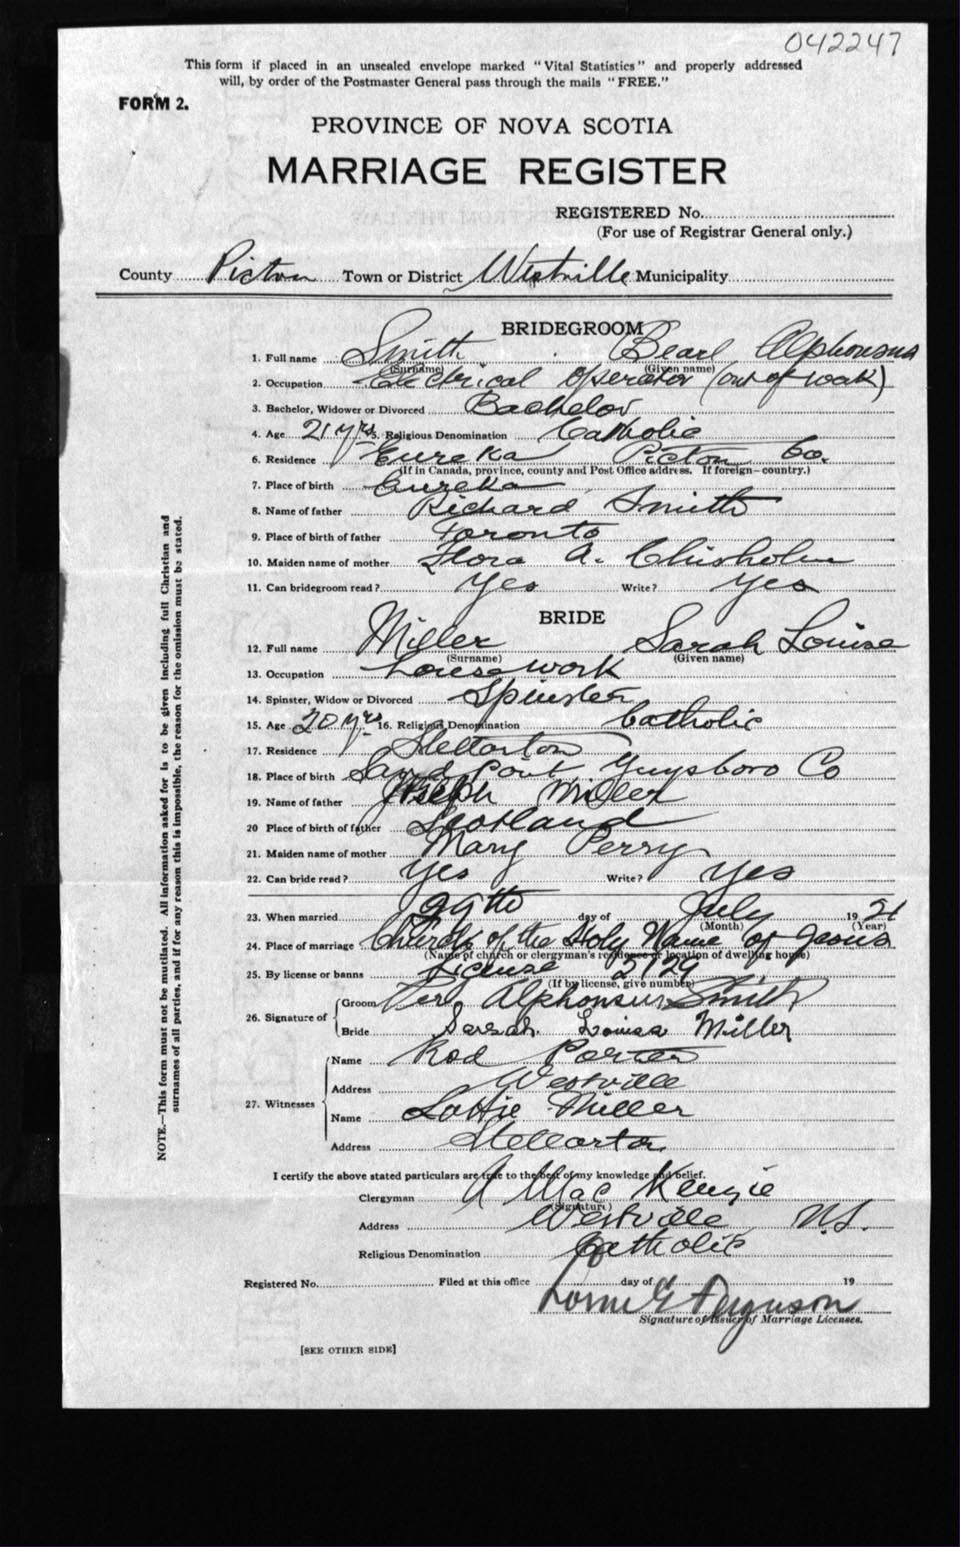 042247
This form if placed in an unsealed envelope marked "Vital Statistics" and properly addressed
will, by order of the Postmaster General pass through the mails "FREE."
FORM 2.
PROVINCE OF NOVA SCOTIA
MARRIAGE REGISTER
REGISTERED No.
(For use of Registrar General only.)
County Pictou Town or District Westville Municipality
BRIDEGROOM
1. Full name Smith Bearl Alphonsus
(Surname) (Given name)
2. Occupation Electrical operator (out of work)
3. Bachelor, Widower or Divorced Bachelor
4. Age 21 yrs 5. Religious Denomination Catholic
6. Residence Eureka Pictou Co.
(If in Canada, province, county and Post Office address. If foreign—country.)
7. Place of birth Eureka
8. Name of father Richard Smith
9. Place of birth of father Toronto
10. Maiden name of mother Flora A. Chisholm
11. Can bridegroom read? Yes Write? Yes
BRIDE
12. Full name Miller Sarah Louise
(Surname) (Given name)
13. Occupation Housework
14. Spinster, Widow or Divorced Spinster
15. Age 20 yrs 16. Religious Denomination Catholic
17. Residence Stellarton
18. Place of birth Sand Point Guysboro Co
19. Name of father Joseph Miller
20 Place of birth of father Scotland
21. Maiden name of mother Mary Perry
22. Can bride read? Yes Write? Yes
23. When married 29th day of July 1921
(Month) (Year)
24. Place of marriage Church of the Holy Name of Jesus
(Name of church or clergyman's residence or location of dwelling house)
25. By license or banns License 2129
(If by license, give number)
26. Signature of
Groom Alphonsus Smith
Bride Sarah Louisa Miller
27. Witnesses
Name Rod Porter
Address Westville
Name Lottie Miller
Address Stellarton
I certify the above stated particulars are true to the best of my knowledge and belief.
Clergyman A MacKenzie
(Signature)
Address Westville, N.S.
Religious Denomination Catholic
Registered No. Filed at this office day of 19
Lorne G Ferguson
Signature of Issuer of Marriage Licenses.
[SEE OTHER SIDE]
NOTE.—This form must not be mutilated. All information asked for is to be given including full Christian and
surnames of all parties, and if for any reason this is impossible, the reason for the omission must be stated.